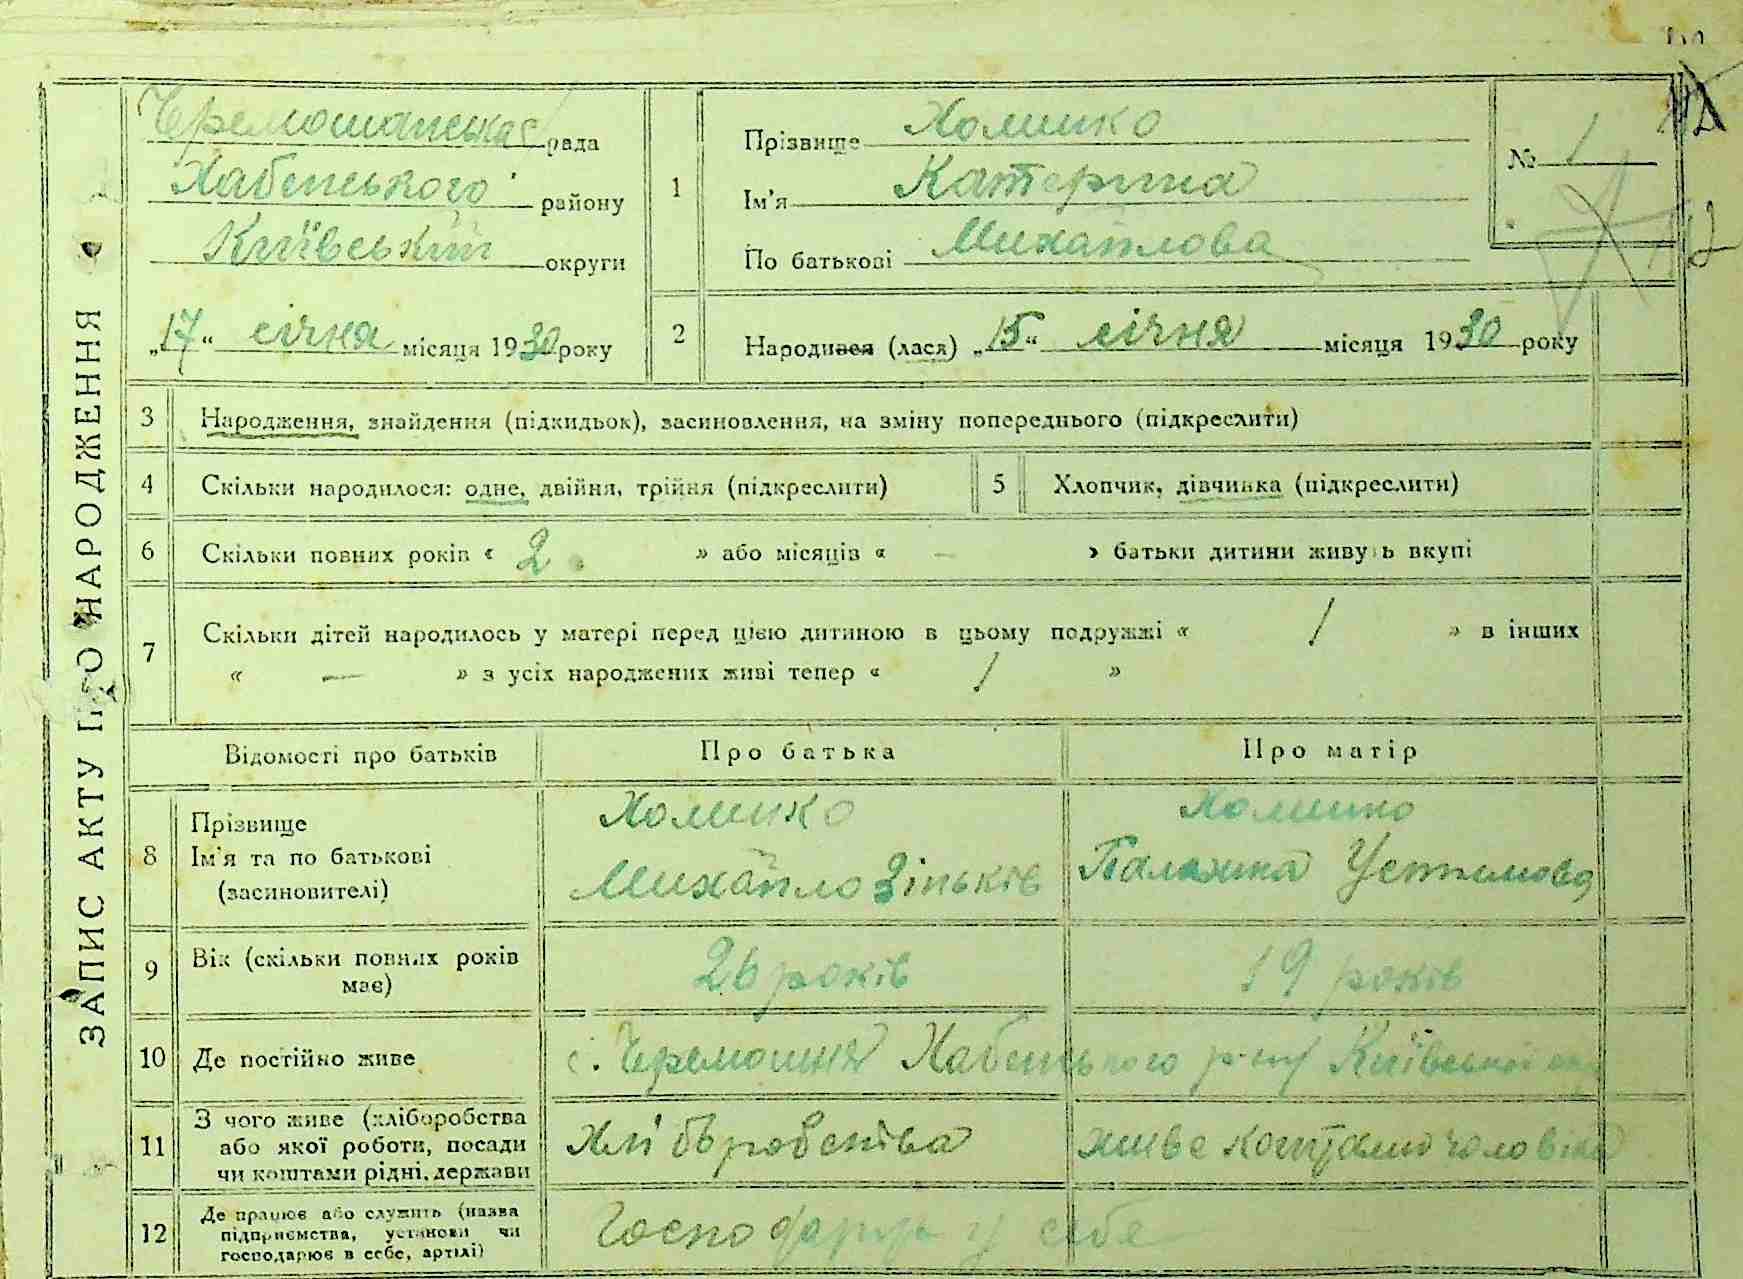 ЗАПИС АКТУ ПРО НАРОДЖЕННЯ
Черемошанська рада
Хабенського району
Київський округи
„17“ січня місяця 1930 року
1
Прізвище Хомишко
Ім'я Катерина
По батькові Михайлова
№ 1
2
Народився (лася) „15“ січня місяця 1930 року
3 Народження, знайдення (підкидьок), засиновлення, на зміну попереднього (підкреслити)
4 Скільки народилося: одне, двійня, трійня (підкреслити) 5 Хлопчик, дівчинка (підкреслити)
6 Скільки повних років « 2 » або місяців « – » батьки дитини живуть вкупі
7 Скільки дітей народилось у матері перед цією дитиною в цьому подружжі « 1 » в інших
« — » з усіх народжених живі тепер « 1 »
Відомості про батьків Про батька Про матір
8 Прізвище
Ім'я та по батькові
(засиновителі)
Хомишко
Михайло Зіньків
Хомишко
Палажка Устимова
9 Вік (скільки повних років
має)
26 років
19 років
10 Де постійно живе
с. Черемошня Хабенського р-ну Київської окр
11 З чого живе (хліборобства
або якої роботи, посади
чи коштами рідні, держави
Хліборобства
живе коштами чоловіка
12 Де працює або служить (назва
підприємства, установи чи
господарює в себе, артілі)
Господарює у себе